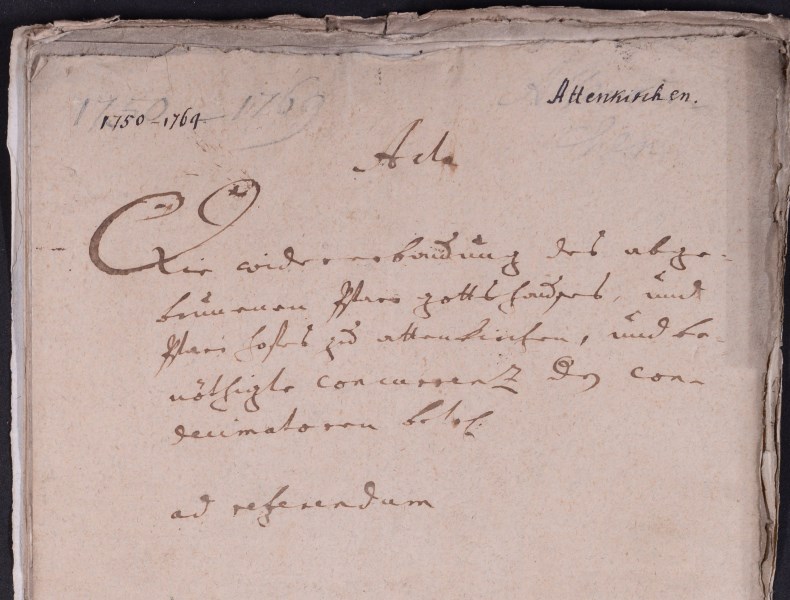 1750–1764
Attenkirchen.
Acta
Die widererbauung des abge-
brunnenen Pfarr gottshauses, und
Pfarr hofes zu attenkirchen, und be-
nöthigte concurrenz der con-
decimatoren betrf.
ad referendum